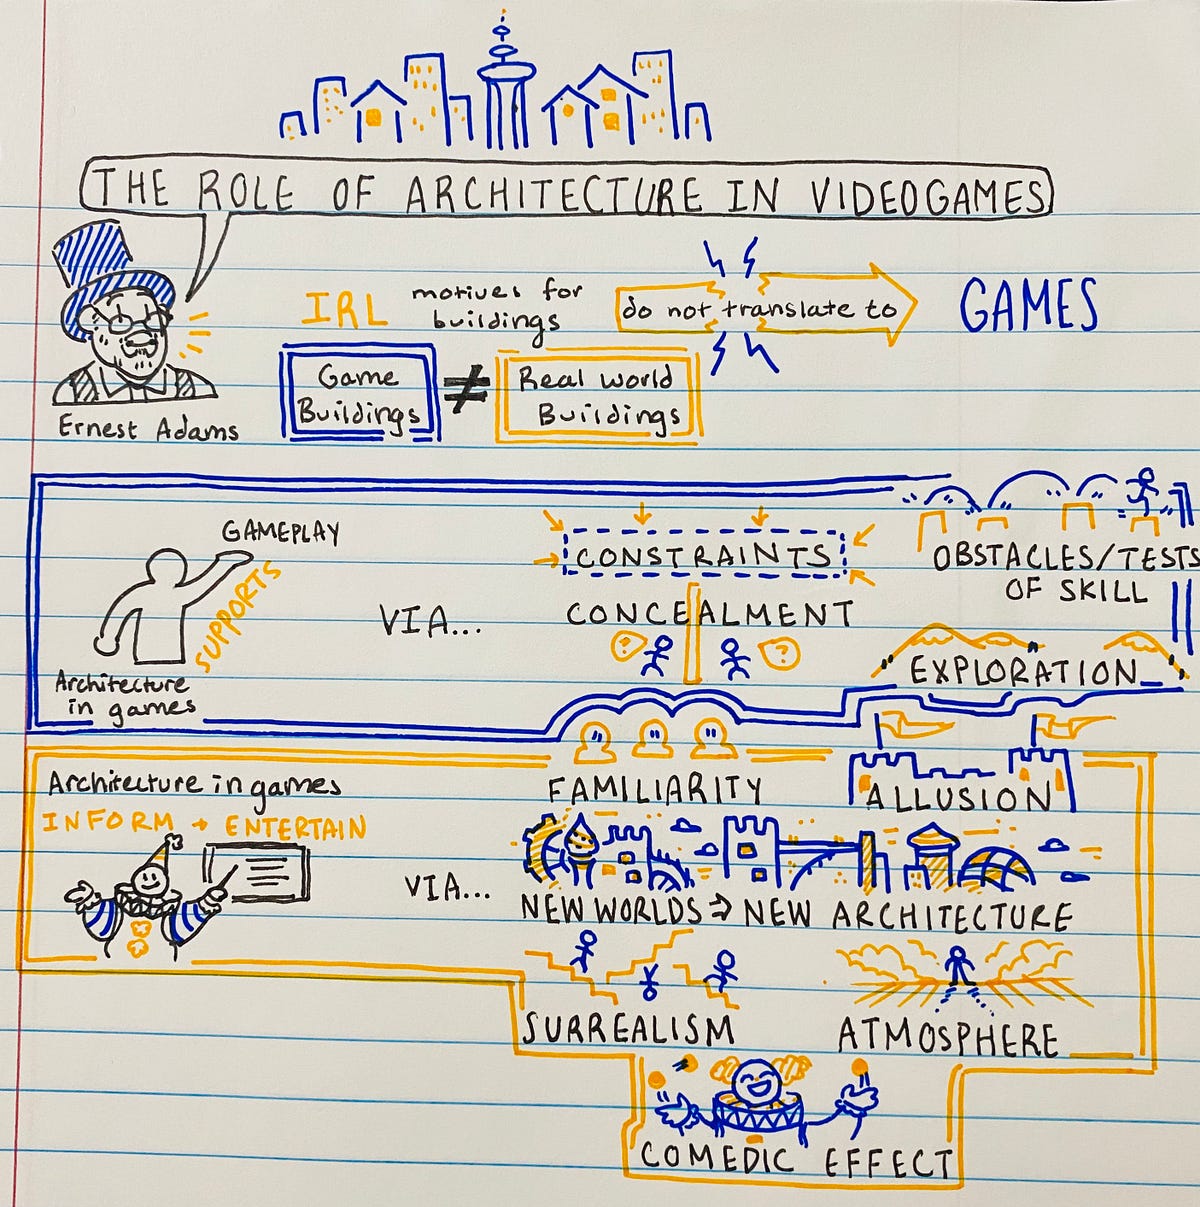 THE ROLE OF ARCHITECTURE IN VIDEOGAMES
IRL motives for buildings do not translate to GAMES
Ernest Adams
Game
Buildings
≠
Real world
Buildings
GAMEPLAY
SUPPORTS
Architecture
in games
VIA...
CONSTRAINTS
CONCEALMENT
? ?
OBSTACLES/TESTS
OF SKILL
EXPLORATION
Architecture in games
INFORM + ENTERTAIN
VIA...
FAMILIARITY
ALLUSION
NEW WORLDS ⇒ NEW ARCHITECTURE
SURREALISM
ATMOSPHERE
COMEDIC EFFECT